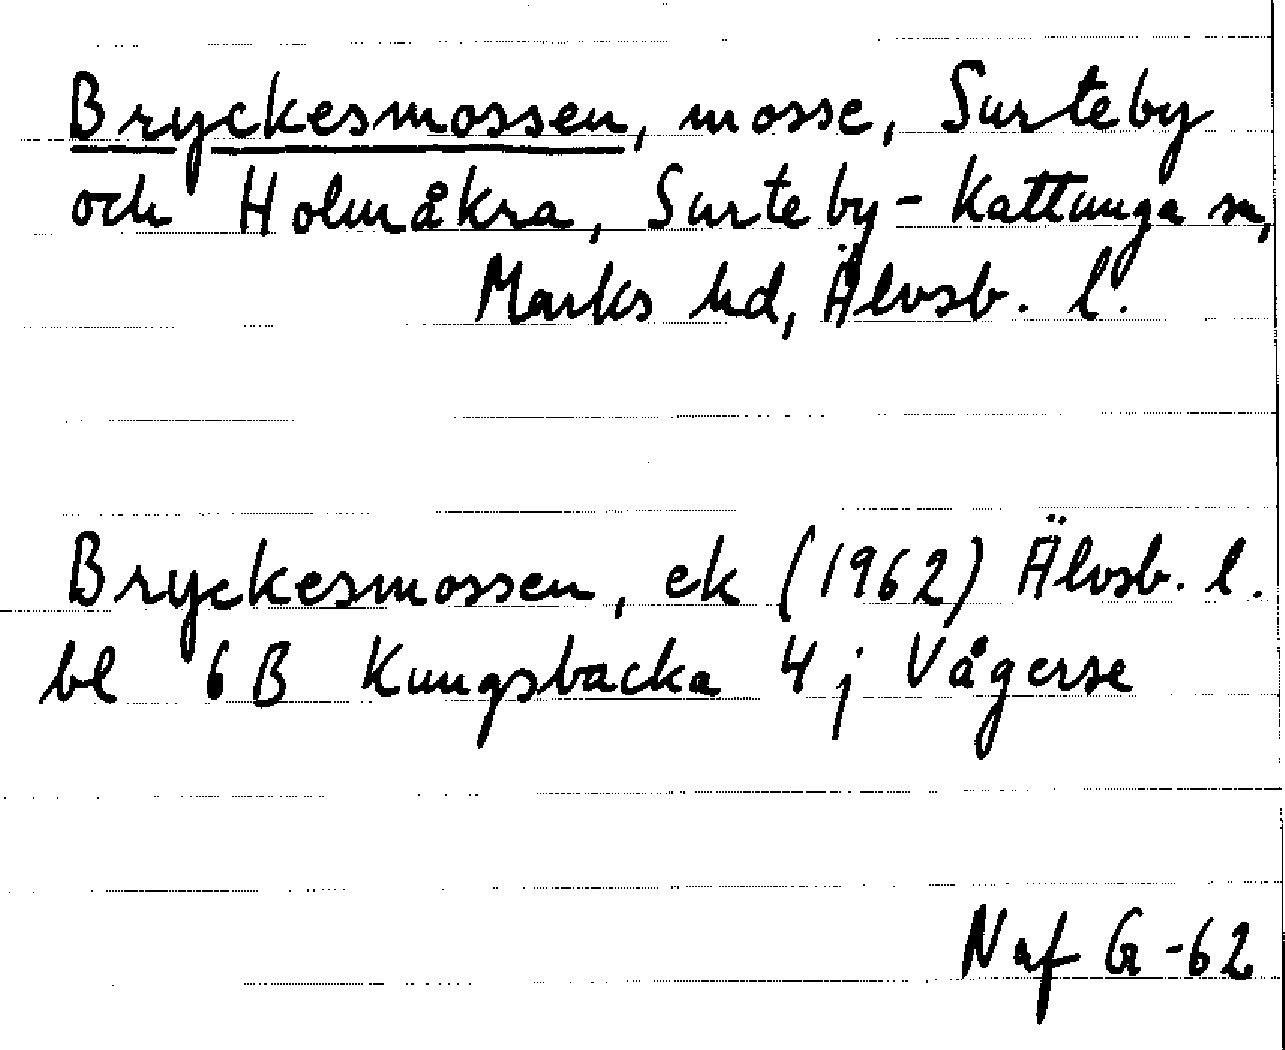 Bryckesmossen, mosse, Surteby
och Holmåkra, Surteby-Kattunga sn,
Marks hd, Älvsb. l.
Bryckesmossen, ek (1962) Älvsb. l.
bl 6 B Kungsbacka 4 j Vågerse
Naf G-62